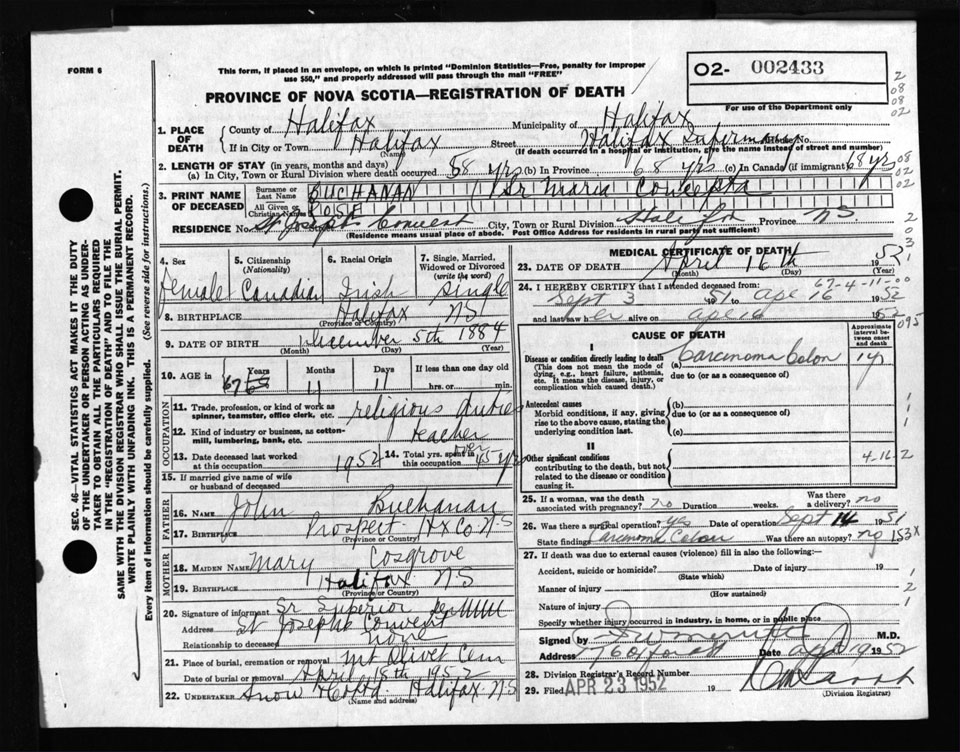 FORM 6
This form, if placed in an envelope, on which is printed "Dominion Statistics—Free, penalty for improper
use $50," and properly addressed will pass through the mail "FREE"
O2- 002433
For use of the Department only
PROVINCE OF NOVA SCOTIA—REGISTRATION OF DEATH
1. PLACE OF DEATH { County of Halifax Municipality of Halifax
If in City or Town Halifax (Name) Street Halifax Infirmary House No.
(If death occurred in a hospital or institution, give the name instead of street and number)
2. LENGTH OF STAY (in years, months and days)
(a) In City, Town or Rural Division where death occurred 68 yrs (b) In Province 68 yrs (c) In Canada (if immigrant) 68 yrs
3. PRINT NAME OF DECEASED { Surname or Last Name BUCHANAN (Sr Maria Concepta
All Given or Christian Names ROSE
RESIDENCE No. St Joseph's Convent City, Town or Rural Division Halifax Province N.S.
(Residence means usual place of abode. Post Office Address for residents in rural parts not sufficient)
SEC. 46—VITAL STATISTICS ACT MAKES IT THE DUTY
OF THE UNDERTAKER OR PERSON ACTING AS UNDER-
TAKER TO OBTAIN ALL THE PARTICULARS REQUIRED
IN THE "REGISTRATION OF DEATH" AND TO FILE THE
SAME WITH THE DIVISION REGISTRAR WHO SHALL ISSUE THE BURIAL PERMIT.
WRITE PLAINLY WITH UNFADING INK. THIS IS A PERMANENT RECORD.
Every item of information should be carefully supplied. (See reverse side for instructions.)
4. Sex Female
5. Citizenship (Nationality) Canadian
6. Racial Origin Irish
7. Single, Married, Widowed or Divorced (write the word) Single
8. BIRTHPLACE Halifax NS
(Province or Country)
9. DATE OF BIRTH December 5th 1884
(Month) (Day) (Year)
10. AGE in { Years 67 Months 11 Days 11 If less than one day old
hrs. or min.
OCCUPATION
11. Trade, profession, or kind of work as spinner, teamster, office clerk, etc. religious duties
12. Kind of industry or business, as cotton-mill, lumbering, bank, etc. teacher
13. Date deceased last worked at this occupation 1952 14. Total yrs. spent in this occupation over 45 yrs
15. If married give name of wife or husband of deceased
FATHER
16. Name John Buchanan
17. Birthplace Prospect Hx Co N.S
MOTHER
18. Maiden Name Mary Cosgrove
19. Birthplace Halifax NS
(Province or Country)
20. Signature of informant Sr Superior
Address St Josephs Convent
Relationship to deceased none
21. Place of burial, cremation or removal Mt Olivet Cem
Date of burial or removal April 18th 1952
22. Undertaker Snow & Co Ltd. Halifax NS
(Name and address)
MEDICAL CERTIFICATE OF DEATH
23. DATE OF DEATH April 16th 1952
(Month) (Day) (Year)
67-4-11-00
24. I HEREBY CERTIFY that I attended deceased from:
Sept 3 1951 to Apl 16 1952
and last saw her alive on Apl 16 1952
CAUSE OF DEATH
Approximate interval between onset and death
I
Disease or condition directly leading to death (a) Carcinoma Colon 1 yr
(This does not mean the mode of dying, e.g., heart failure, asthenia, etc. It means the disease, injury, or complication which caused death.)
due to (or as a consequence of)
Antecedent causes (b)
Morbid conditions, if any, giving rise to the above cause, stating the underlying condition last.
due to (or as a consequence of)
(c)
II
Other significant conditions contributing to the death, but not related to the disease or condition causing it.
4-16-2
25. If a woman, was the death associated with pregnancy? no Duration weeks. Was there a delivery? no
26. Was there a surgical operation? yes Date of operation Sept 14 1951
State findings Carcinoma Colon Was there an autopsy? no 153X
27. If death was due to external causes (violence) fill in also the following:—
Accident, suicide or homicide? Date of injury 19
(State which)
Manner of injury
(How sustained)
Nature of injury
Specify whether injury occurred in industry, in home, or in public place
Signed by M.D.
Address Date 1952
28. Division Registrar's Record Number
29. Filed APR 23 1952 19
(Division Registrar)